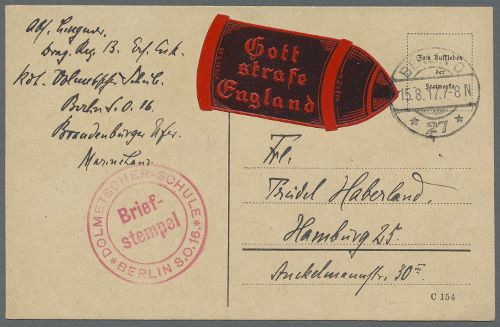 Abs. Lingner,
Drag. Reg. 13. Ers. Esk.
kdt. Dolmetscher Schule.
Berlin S.O. 16.
Brandenburger Ufer.
Marinehaus
DOLMETSCHER-SCHULE
Brief-
stempel
* BERLIN S.O.16. *
Gott
strafe
England
Zum Aufkleben
der
Freimarke
15.8.17.7-8N
* 27 *
Frl.
Trudel Haberland.
Hamburg 25.
Anckelmannstr. 30 III.
C 154